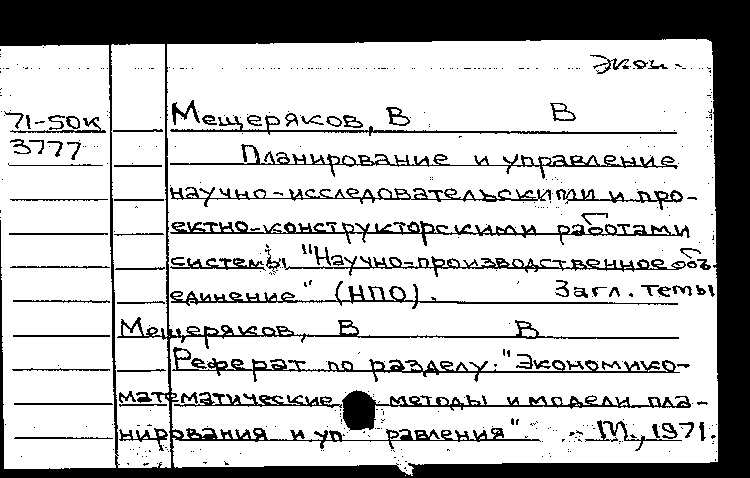 Экон.
71-50к Мещеряков, В В
3777 Планирование и управление
научно-исследовательскими и про-
ектно-конструкторскими работами
системы "Научно-производственное объ-
единение" (НПО). Загл. темы
Мещеряков, В В
Реферат по разделу: "Экономико-
математические методы и модели пла-
нирования и управления". - М., 1971.